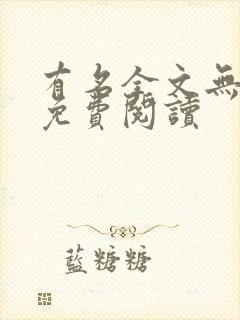 有名全文無
免費閱讀
藍糖糖